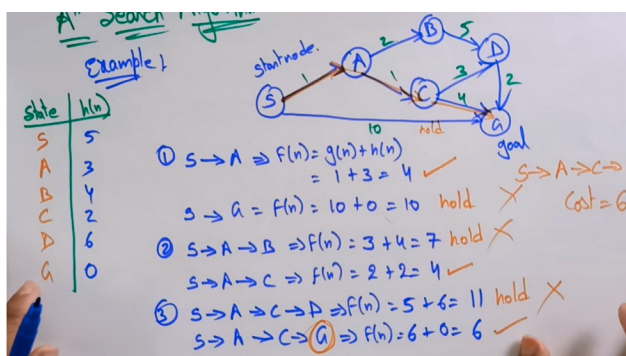 A* Search Algorithm
Example 1
start node.
State h(n)
S 5
A 3
B 4
C 2
D 6
G 0
S
A
B
C
D
G
goal
1
2
5
1
3
4
2
10
hold
① S → A ⇒ f(n) = g(n) + h(n)
= 1 + 3 = 4 ✓
S → G = f(n) = 10 + 0 = 10 hold ✗
② S → A → B ⇒ f(n) = 3 + 4 = 7 hold ✗
S → A → C ⇒ f(n) = 2 + 2 = 4 ✓
③ S → A → C → D ⇒ f(n) = 5 + 6 = 11 hold ✗
S → A → C → G ⇒ f(n) = 6 + 0 = 6 ✓
S → A → C →
Cost = 6